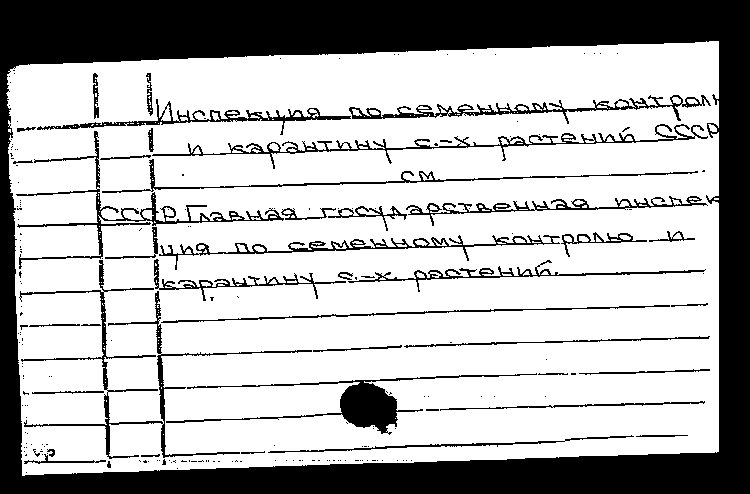 Инспекция по семенному контролю
и карантину с.-х. растений СССР
см.
СССР. Главная государственная инспек
ция по семенному контролю и
карантину с.-х. растений.
ур